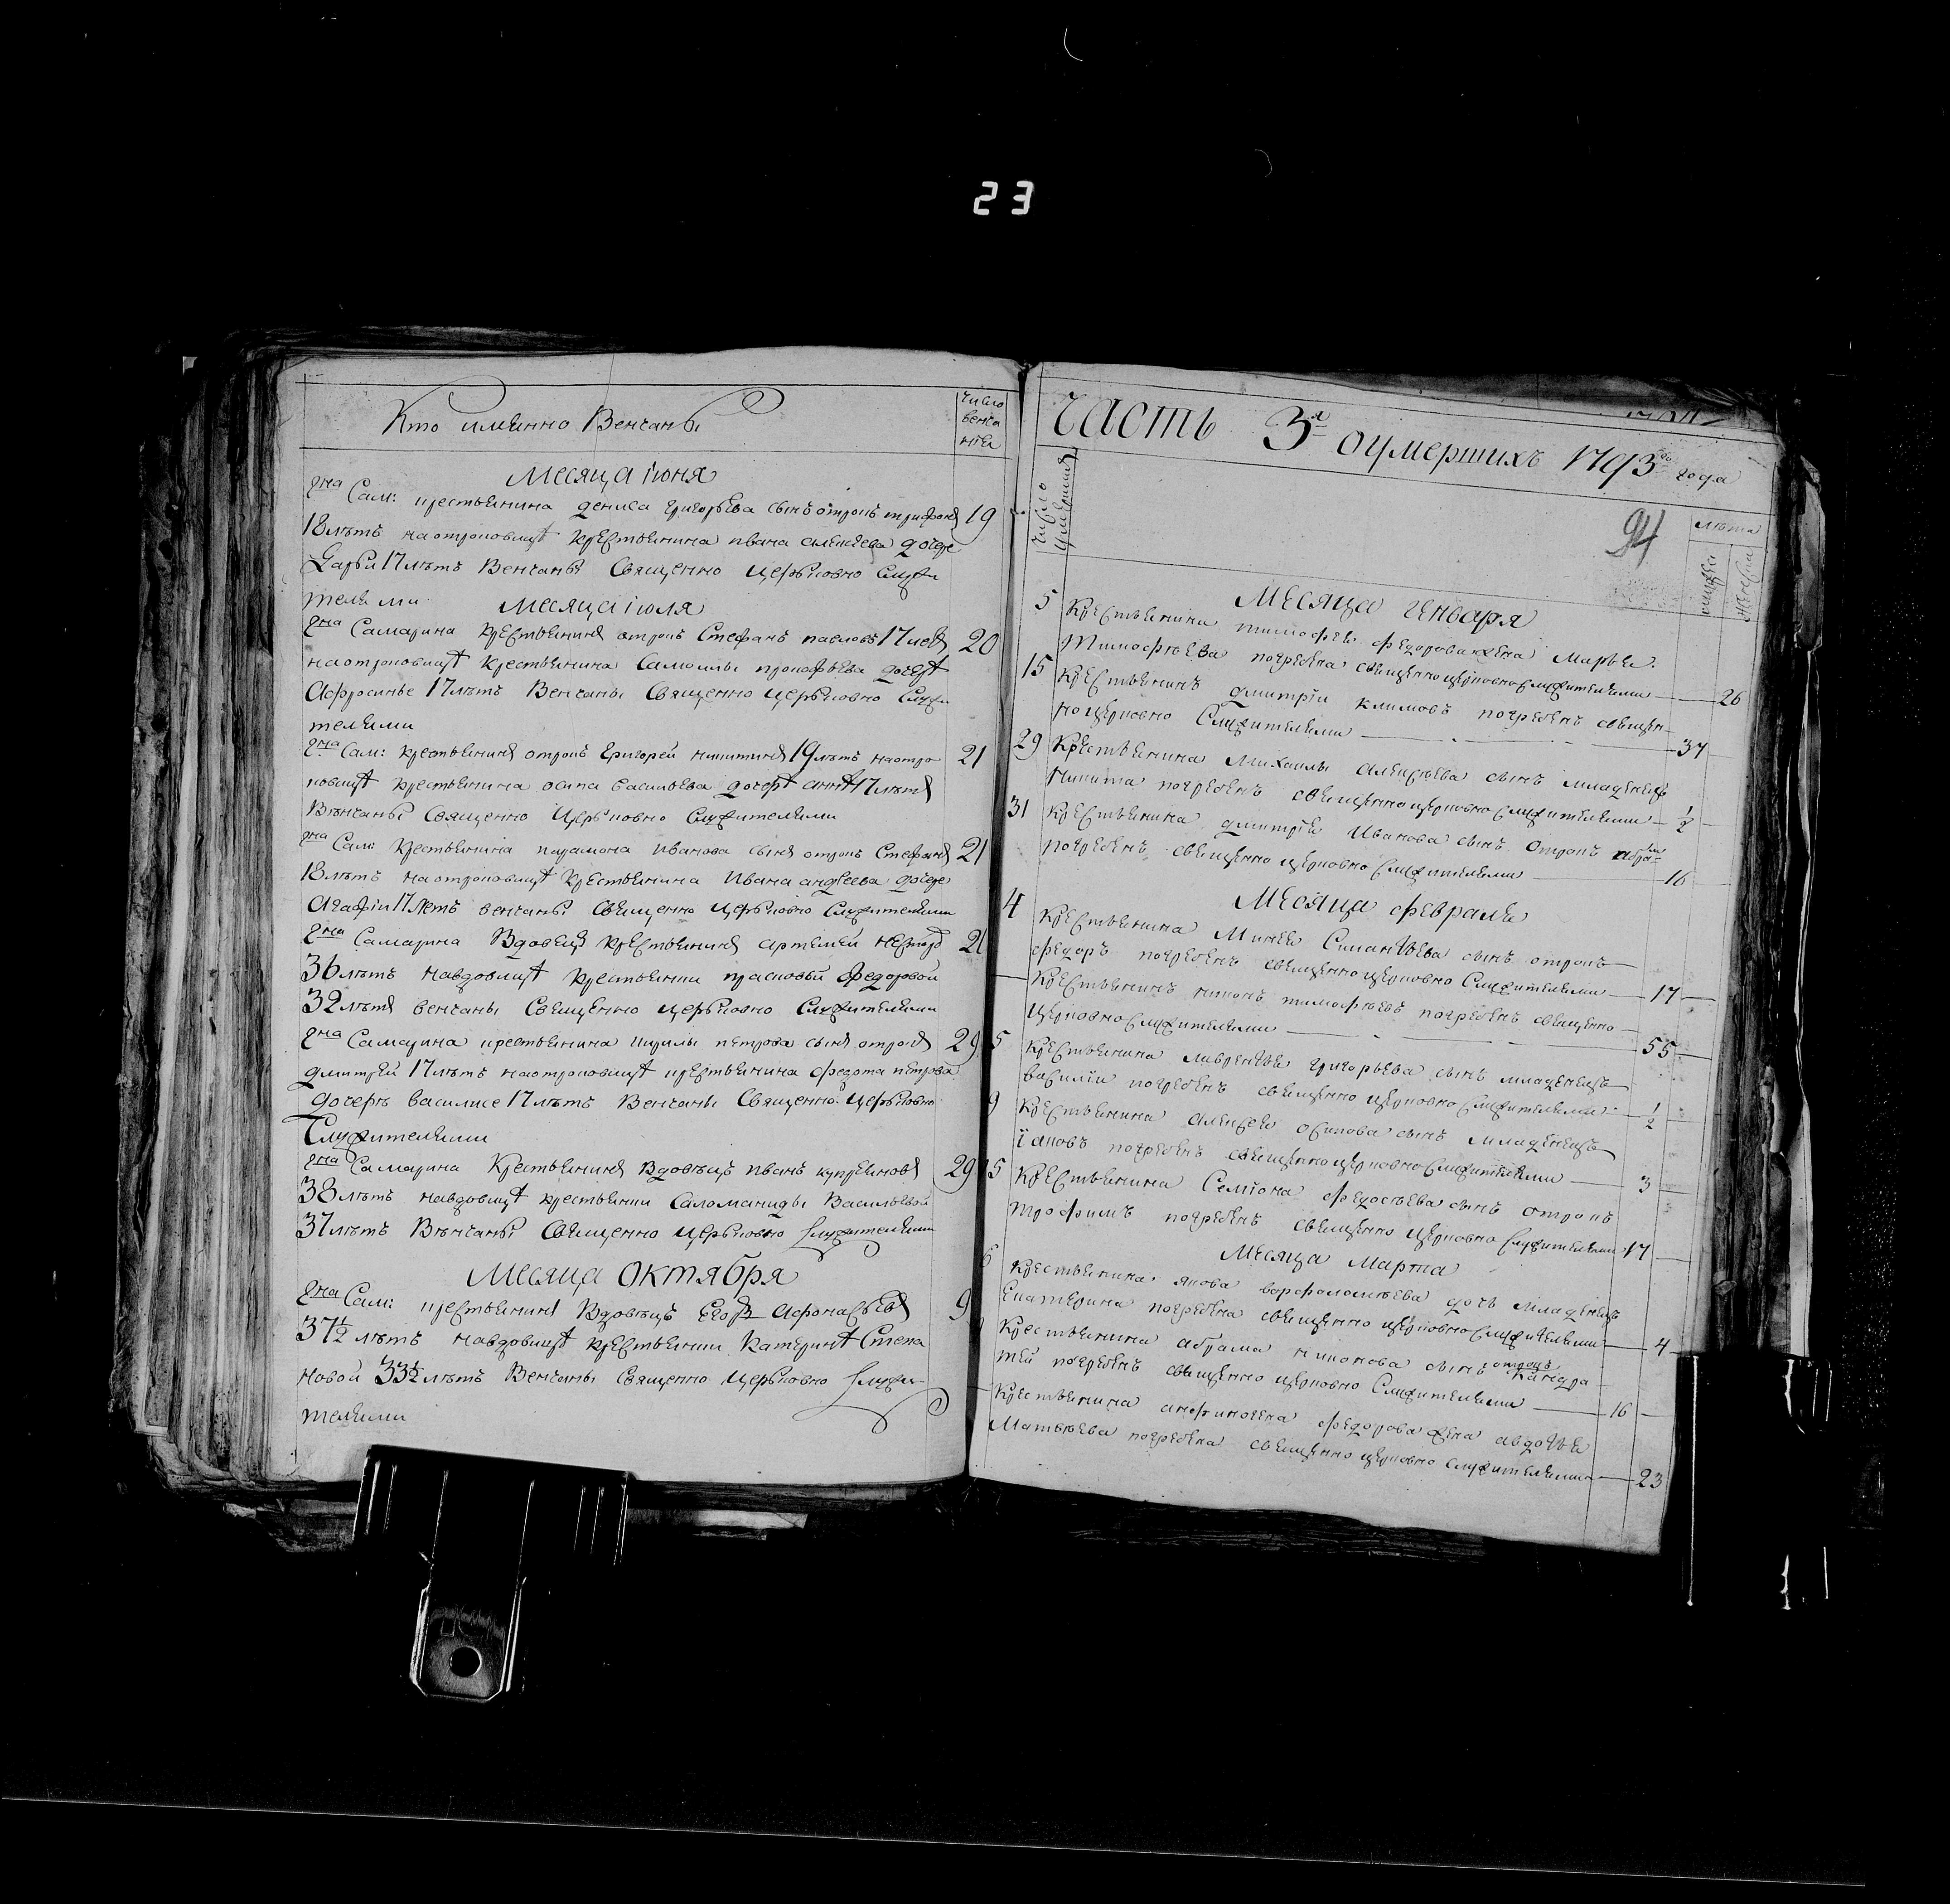 23
Кто имянно Венчаны
число
венча
нiя
Месяца iюня
гдна Сам: крестьянина дениса григорьева сынъ отрокъ трифонъ 19
18 лѣтъ на отроковицѣ крестьянина ивана алексѣева дочере
Дарьи 17 лѣтъ Венчаны Священно церьковно служи
телями
Месяца iюля
гдна Самарина крестьянинъ отрокъ Стефанъ павловъ 17 летъ 20
на отроковицѣ крестьянина Самоилы прокофьева дочерѣ
Афросинье 17 лѣтъ Венчаны Священно церьковно служи
телями
гдна Сам: крестьянинъ отрокъ Григорей никитинъ 19 лѣтъ на отро 21
ковицѣ крестьянина осипа васильева дочерѣ аннѣ 17 лѣтъ
Вѣнчаны Священно Церьковно Служителями
гдна Сам: Крестьянина парамона Иванова сынъ отрокъ Стефанъ 21
18 лѣтъ на отроковицѣ крестьянина Ивана андреева дочере
Агафiи 17 Летъ венчаны Священно церьковно Служителями
гдна Самарина Вдовецъ крестьянинъ артемей 21
36 лѣтъ на вдовицѣ крестьянки прасковьи Федоровой
32 лѣтъ венчаны Священно церьковно Служителями
гдна Самарина крестьянина кирилы петрова сынъ отрокъ 29
дмитрей 17 лѣтъ на отроковицѣ крестьянина федота петрова
дочерѣ василисе 17 лѣтъ Венчаны Священно Церьковно
Служителями
гдна Самарина Крестьянинъ Вдовѣцъ иванъ купреяновъ 29
38 лѣтъ на вдовицѣ крестьянки Саломаниды Васильевой
37 лѣтъ Вѣнчаны Священно церьковно Служителями
Месяца октября
гдна Сам: крестьянинъ Вдовѣцъ Егоръ Афонасьевъ 9
37 1/2 лѣтъ на вдовицѣ крестьянки Катеринѣ Степа
новой 33 1/2 лѣтъ Венчаны Священно церьковно Служи
телями
часть 3я оумершихъ 1793го года
94
число
умершихъ
лѣта
мужеска
женска
Месяца генваря
5 Крестьянина тимофея федорова жена Марья
Тимофѣева погребена священно церковно служителями 26
15 Крестьянинъ дмитрiи климовъ погребенъ священ
но церковно Служителями 37
29 Крестьянина Михаилы алексѣева сынъ младенецъ
Никита погребенъ священно церковно служителями 1/2
31 Крестьянина дмитрiя Иванова сынъ отрокъ абрамъ
погребенъ священно церковно служителями 16
Месяца февраля
4 Крестьянина Минея Силантьева сынъ отрокъ
федоръ погребенъ священно церковно Служителями 17
Крестьянинъ никонъ тимофѣевъ погребенъ священно
церковно служителями 55
5 Крестьянина лаврентья григорьева сынъ младенецъ
василiи погребенъ священно церковно служителями 1/2
9 Крестьянина алексея осипова сынъ младенецъ
iаковъ погребенъ священно церковно служителями 3
15 Крестьянина Семiона федосѣева сынъ отрокъ
трофимъ погребенъ священно церковно служителями 17
Месяца Марта
6 крестьянина якова варфоломѣева дочь младенецъ
Екатерина погребена священно церковно служителями 4
Крестьянина абрама никонова сынъ отрокъ Кандра
тей погребенъ священно церковно Служителями 16
Крестьянина анфиногена федорова жена авдотья
Матвѣева погребена священно церковно служителями 23